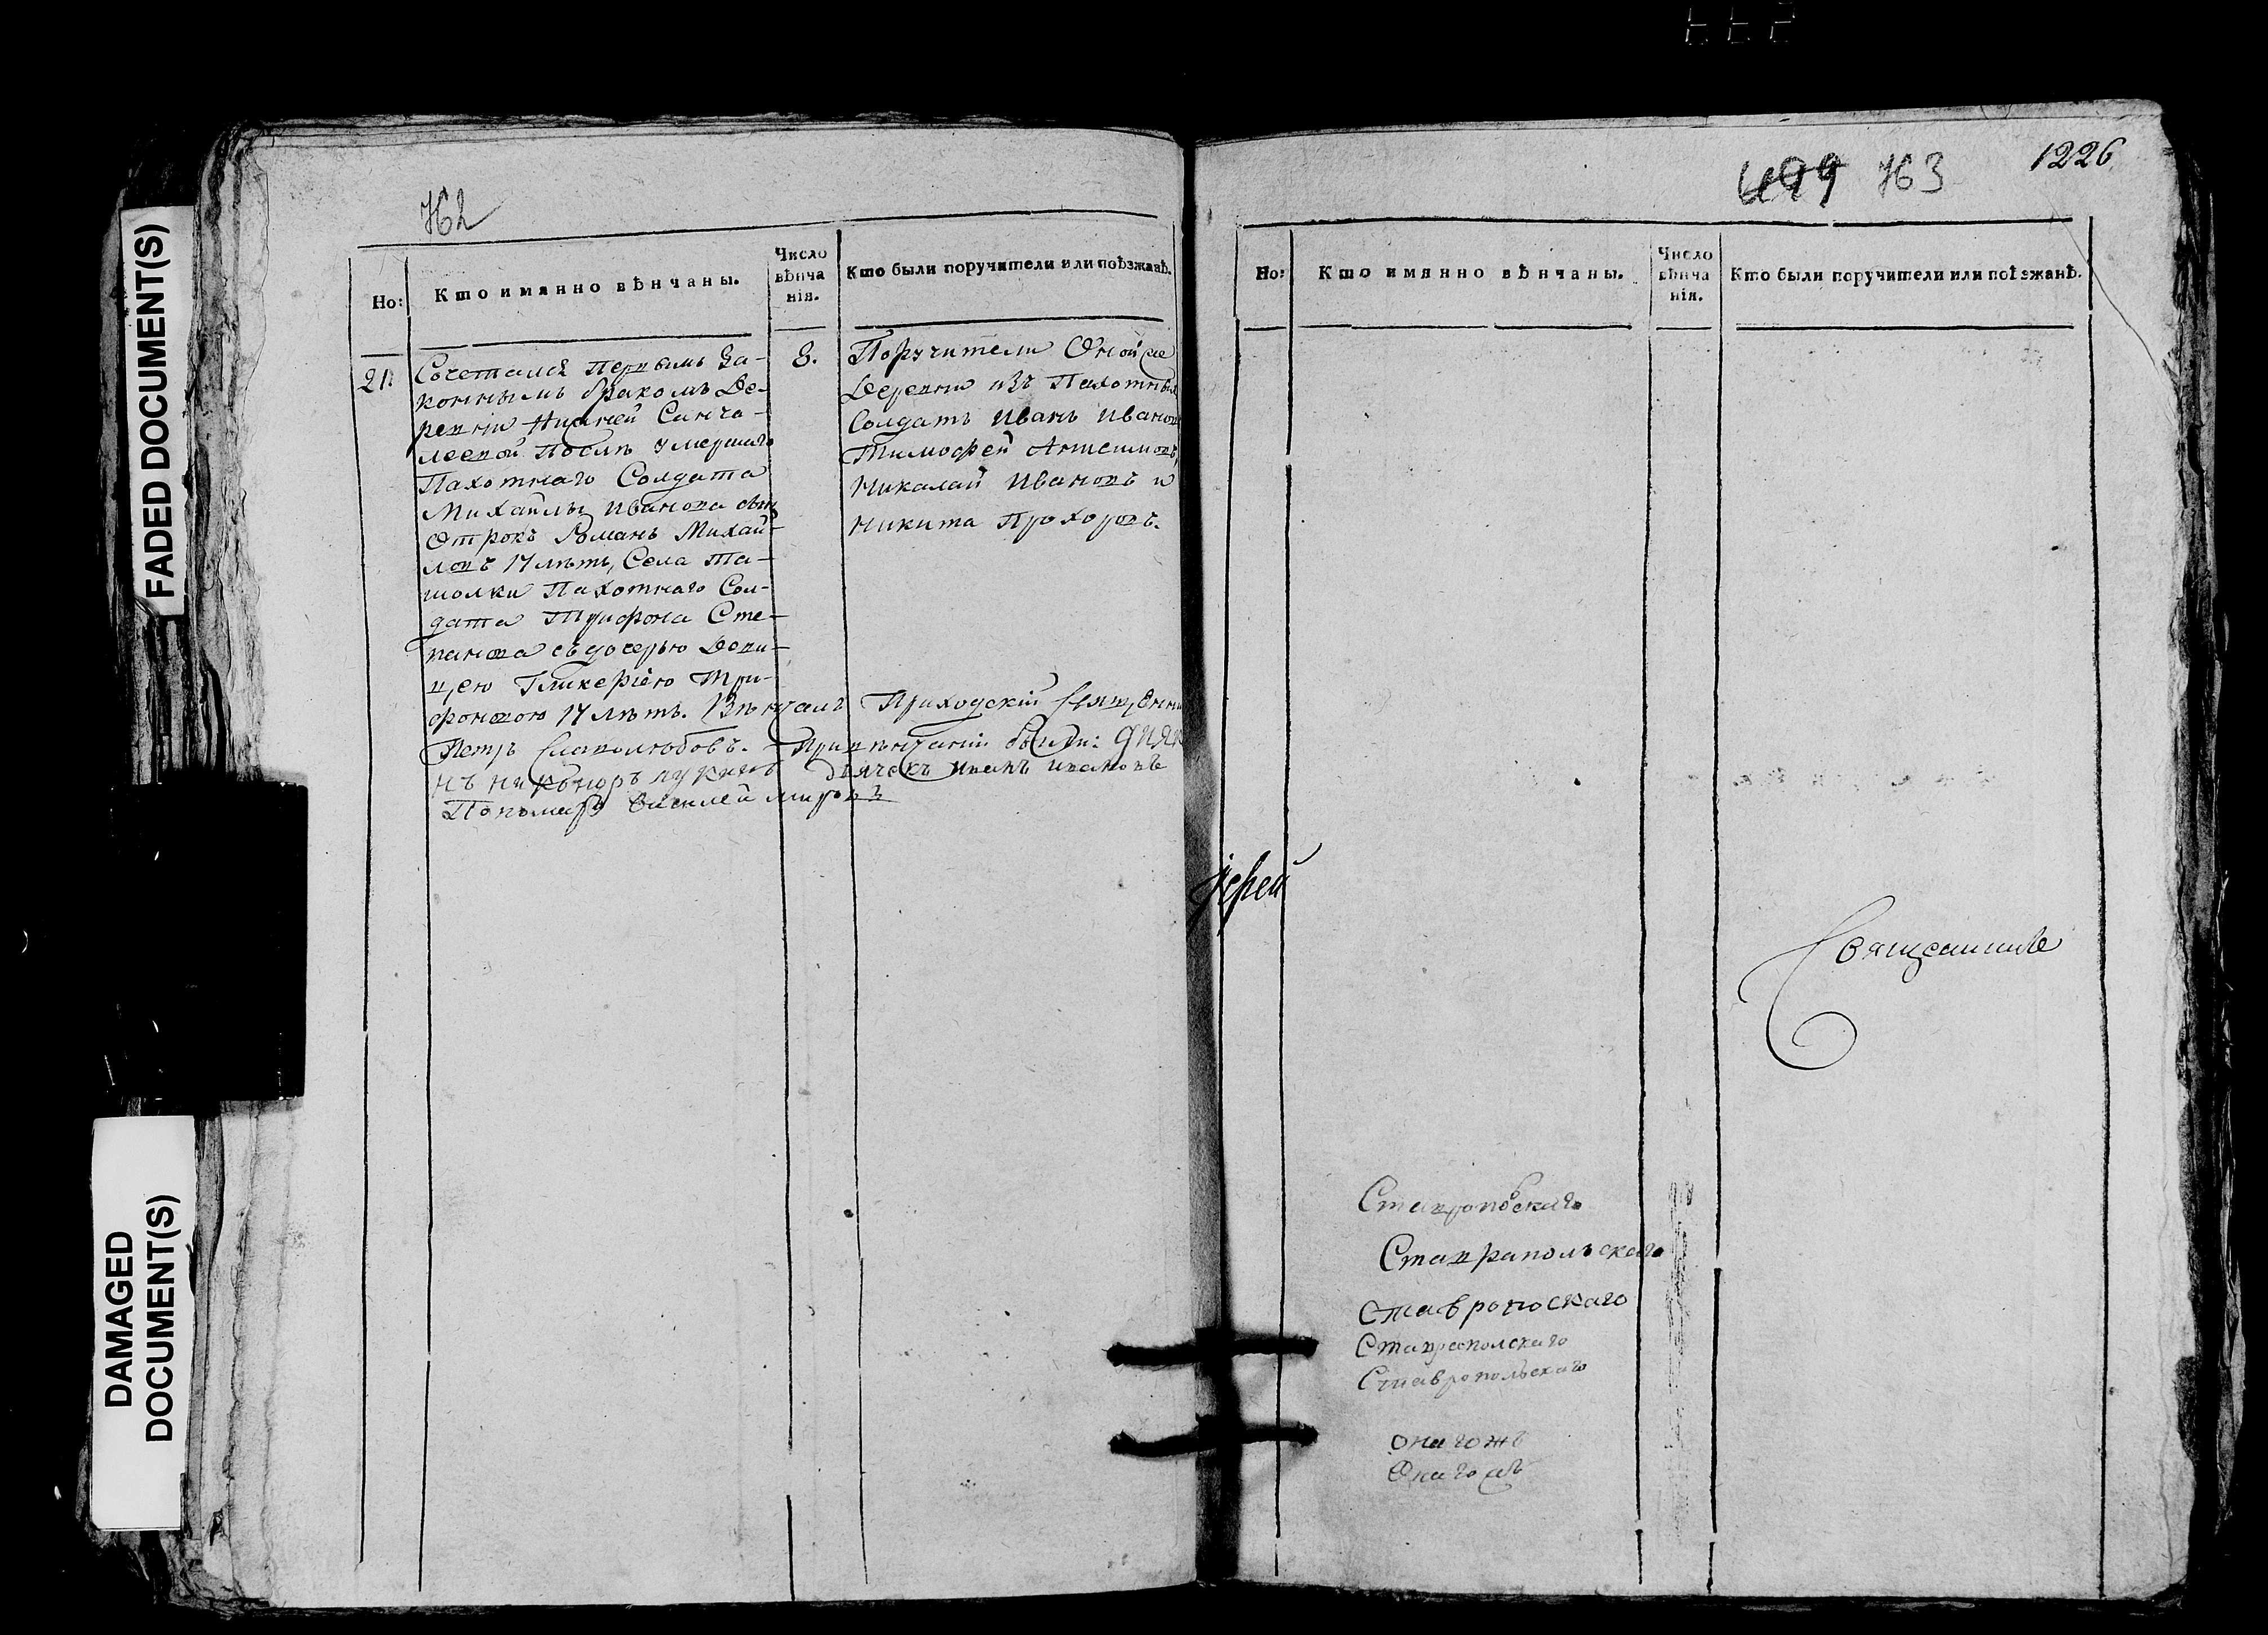 FADED DOCUMENT(S)
DAMAGED
DOCUMENT(S)
762
Но:
Кто имянно вѣнчаны.
Число
вѣнча
нія.
Кто были поручители или поѣзжанѣ.
21.
Сочетался первымъ за-
коннымъ бракомъ де-
ревни Нижней Санча-
леевой послѣ умершаго
Пахотнаго Солдата
Михайлы Иванова сынъ
отрокъ Романъ Михай-
ловъ 17 лѣтъ, Села Та-
шолки Пахотнаго Сол-
дата Трифона Сте-
панова съ дочерью деви-
цею Гликеріею Три-
фоновою 17 лѣтъ. Вѣнчалъ Приходскій Священни
Петръ Славолюбовъ. При вѣнчаніи были: дияк
нъ никоноръ лукинъ дьячекъ иванъ ивановъ
Пономарь василей
8.
Поручители Оной же
деревни изъ Пахотныхъ
Солдатъ Иванъ Ивановъ
Тимофей Анисимовъ,
Николай Ивановъ и
Никита Прохоровъ.
499 763
1226
Но:
Кто имянно вѣнчаны.
Число
вѣнча
нія.
Кто были поручители или поѣзжанѣ.
іерей
Священникъ
Ставропоскаго
Ставрапольскаго
Ставропоскаго
Ставрополскаго
Ставропольскаго
онагожъ
Онагожъ